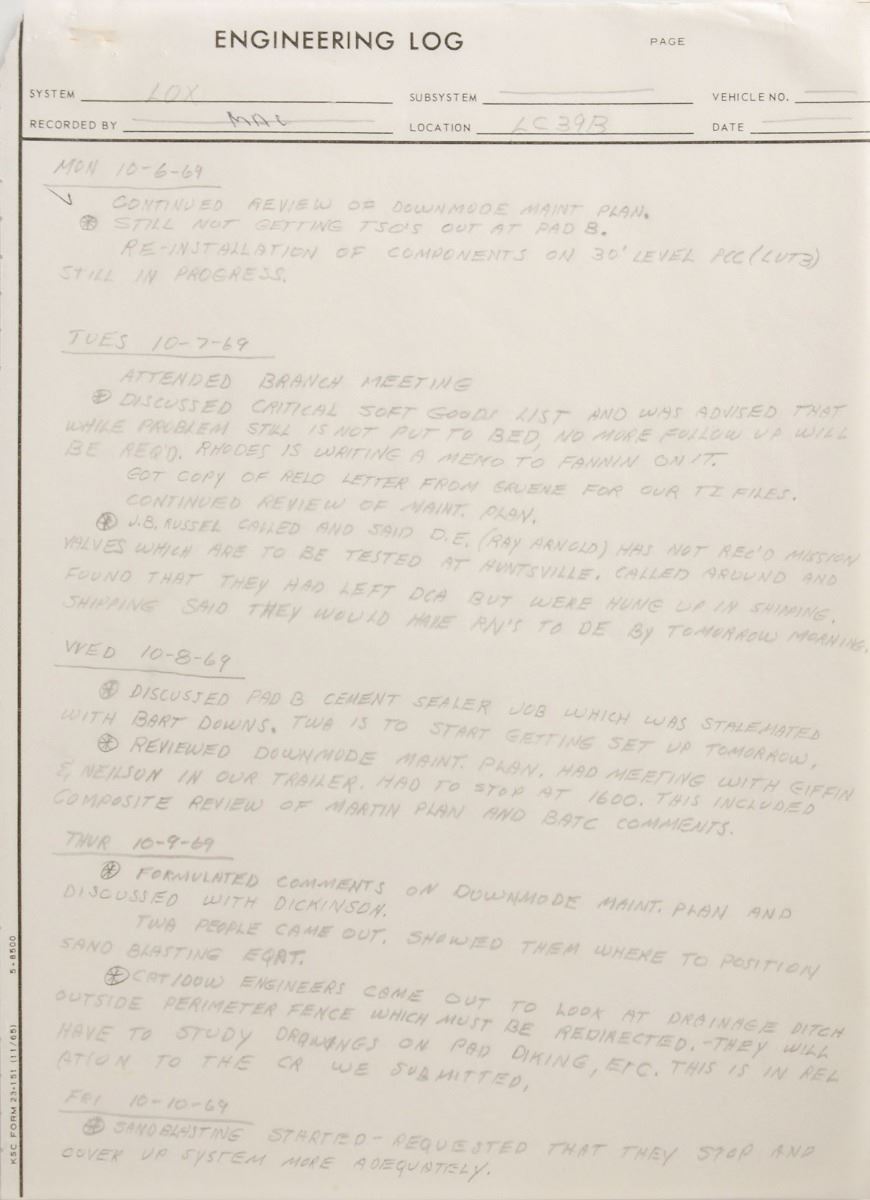 ENGINEERING LOG
PAGE
SYSTEM LOX SUBSYSTEM VEHICLE NO.
RECORDED BY MAC LOCATION LC 39B DATE
MON 10-6-69
CONTINUED REVIEW OF DOWNMODE MAINT PLAN.
STILL NOT GETTING TSO'S OUT AT PAD B.
RE-INSTALLATION OF COMPONENTS ON 30' LEVEL PCC (LUT3)
STILL IN PROGRESS.
TUES 10-7-69
ATTENDED BRANCH MEETING
DISCUSSED CRITICAL SOFT GOODS LIST AND WAS ADVISED THAT
WHILE PROBLEM STILL IS NOT PUT TO BED, NO MORE FOLLOW UP WILL
BE REQ'D. RHODES IS WRITING A MEMO TO FANNIN ON IT.
GOT COPY OF RELO LETTER FROM GRUENE FOR OUR TI FILES.
CONTINUED REVIEW OF MAINT. PLAN.
J.B. RUSSEL CALLED AND SAID D.E. (RAY ARNOLD) HAS NOT REC'D MISSION
VALVES WHICH ARE TO BE TESTED AT HUNTSVILLE. CALLED AROUND AND
FOUND THAT THEY HAD LEFT DCA BUT WERE HUNG UP IN SHIPPING.
SHIPPING SAID THEY WOULD HAVE TO DE BY TOMORROW MORNING.
WED 10-8-69
DISCUSSED PAD B CEMENT SEALER JOB WHICH WAS STALEMATED
WITH BART DOWNS. TWA IS TO START GETTING SET UP TOMORROW.
REVIEWED DOWNMODE MAINT. PLAN. HAD MEETING WITH GIFFIN
& NEILSON IN OUR TRAILER. HAD TO STOP AT 1600. THIS INCLUDED
COMPOSITE REVIEW OF MARTIN PLAN AND BATC COMMENTS.
THUR 10-9-69
FORMULATED COMMENTS ON DOWNMODE MAINT. PLAN AND
DISCUSSED WITH DICKINSON.
TWA PEOPLE CAME OUT. SHOWED THEM WHERE TO POSITION
SAND BLASTING EQPT.
CAT/DOW ENGINEERS CAME OUT TO LOOK AT DRAINAGE DITCH
OUTSIDE PERIMETER FENCE WHICH MUST BE REDIRECTED. - THEY WILL
HAVE TO STUDY DRAWINGS ON PAD DIKING, ETC. THIS IS IN REL
ATION TO THE CR WE SUBMITTED.
FRI 10-10-69
SANDBLASTING STARTED - REQUESTED THAT THEY STOP AND
COVER UP SYSTEM MORE ADEQUATELY.
KSC FORM 23-151 (11/65) 5-8500